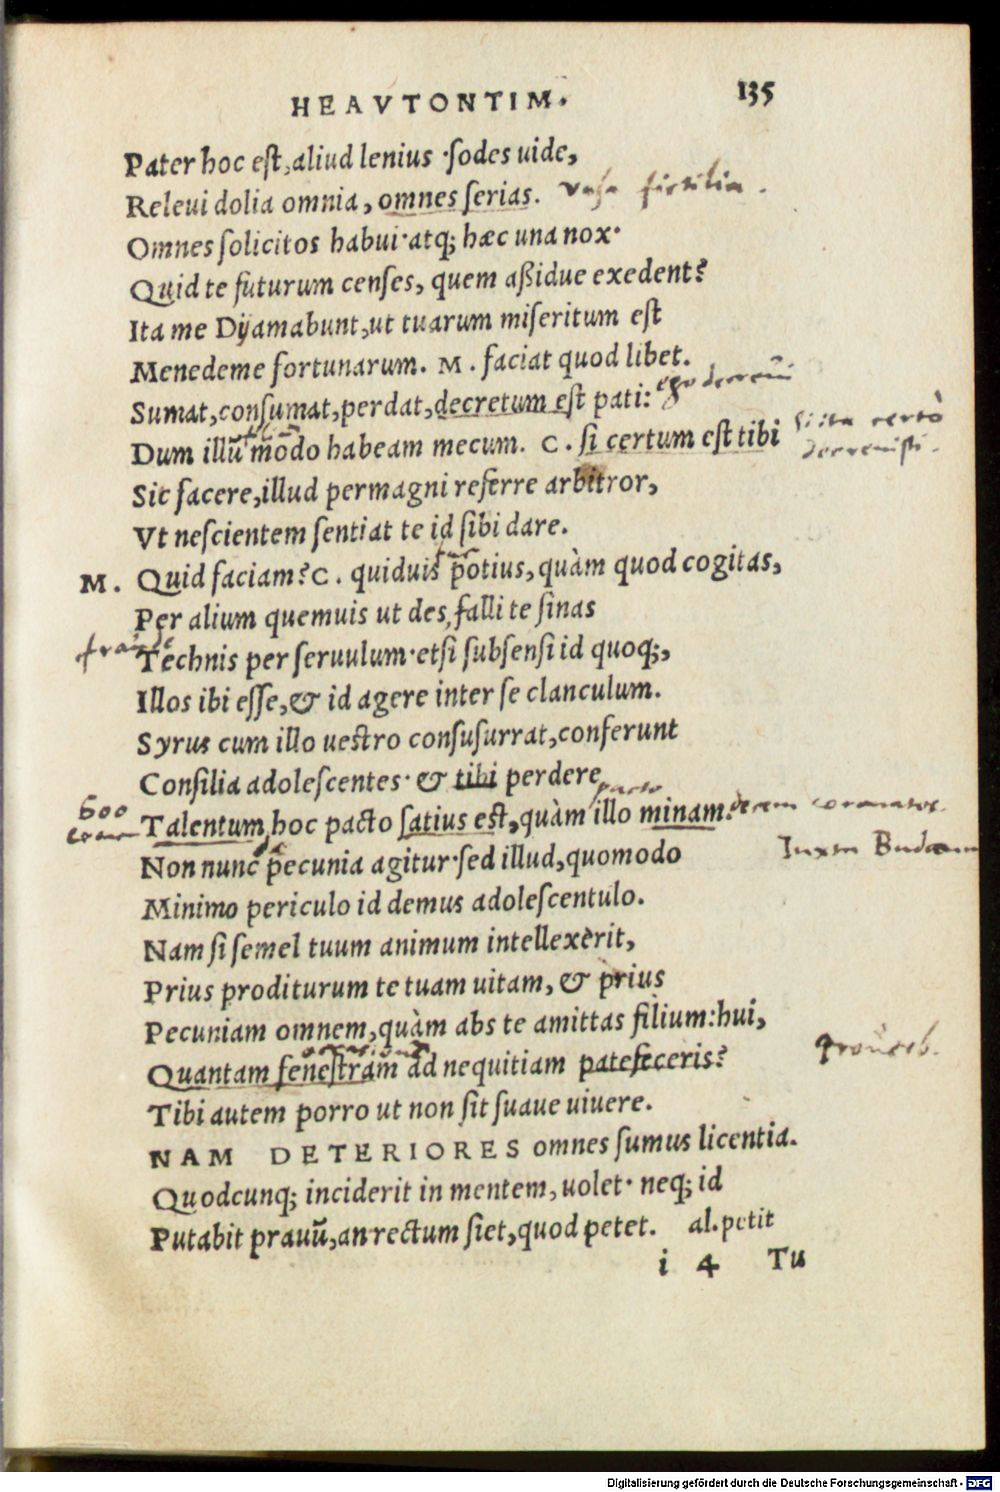 HEAVTONTIM. 135
Pater hoc est, aliud lenius ·sodes uide,
Releui dolia omnia, omnes serias. vasa fictilia.
Omnes solicitos habui·atq; hæc una nox·
Quid te futurum censes, quem aßidue exedent?
Ita me Dij amabunt, ut tuarum miseritum est
Menedeme fortunarum. M. faciat quod libet.
ego decreui
Sumat, consumat, perdat, decretum est pati:
Dum illũ modo habeam mecum. C. si certum est tibi si ita certò decreuisti.
Sic facere, illud permagni referre arbitror,
Vt nescientem sentiat te id sibi dare.
M. Quid faciam? C. quiduis potius, quàm quod cogitas,
Per alium quemuis ut des, falli te sinas
Technis per seruulum·etsi subsensi id quoq;,
Illos ibi esse, & id agere inter se clanculum.
Syrus cum illo uestro consusurrat, conferunt
Consilia adolescentes· & tibi perdere
pacto
600 Talentum hoc pacto satius est, quàm illo minam. decem coronatos
Iuxta Budaeum
Non nunc pecunia agitur·sed illud, quomodo
Minimo periculo id demus adolescentulo.
Nam si semel tuum animum intellexerit,
Prius proditurum te tuam uitam, & prius
Pecuniam omnem, quàm abs te amittas filium: hui,
Quantam fenestram ad nequitiam patefeceris? prouerb.
Tibi autem porro ut non sit suaue uiuere.
NAM DETERIORES omnes sumus licentia.
Quodcunq; inciderit in mentem, uolet· neq; id
Putabit prauũ, an rectum siet, quod petet. al. petit
i 4 Tu
Digitalisierung gefördert durch die Deutsche Forschungsgemeinschaft - DFG